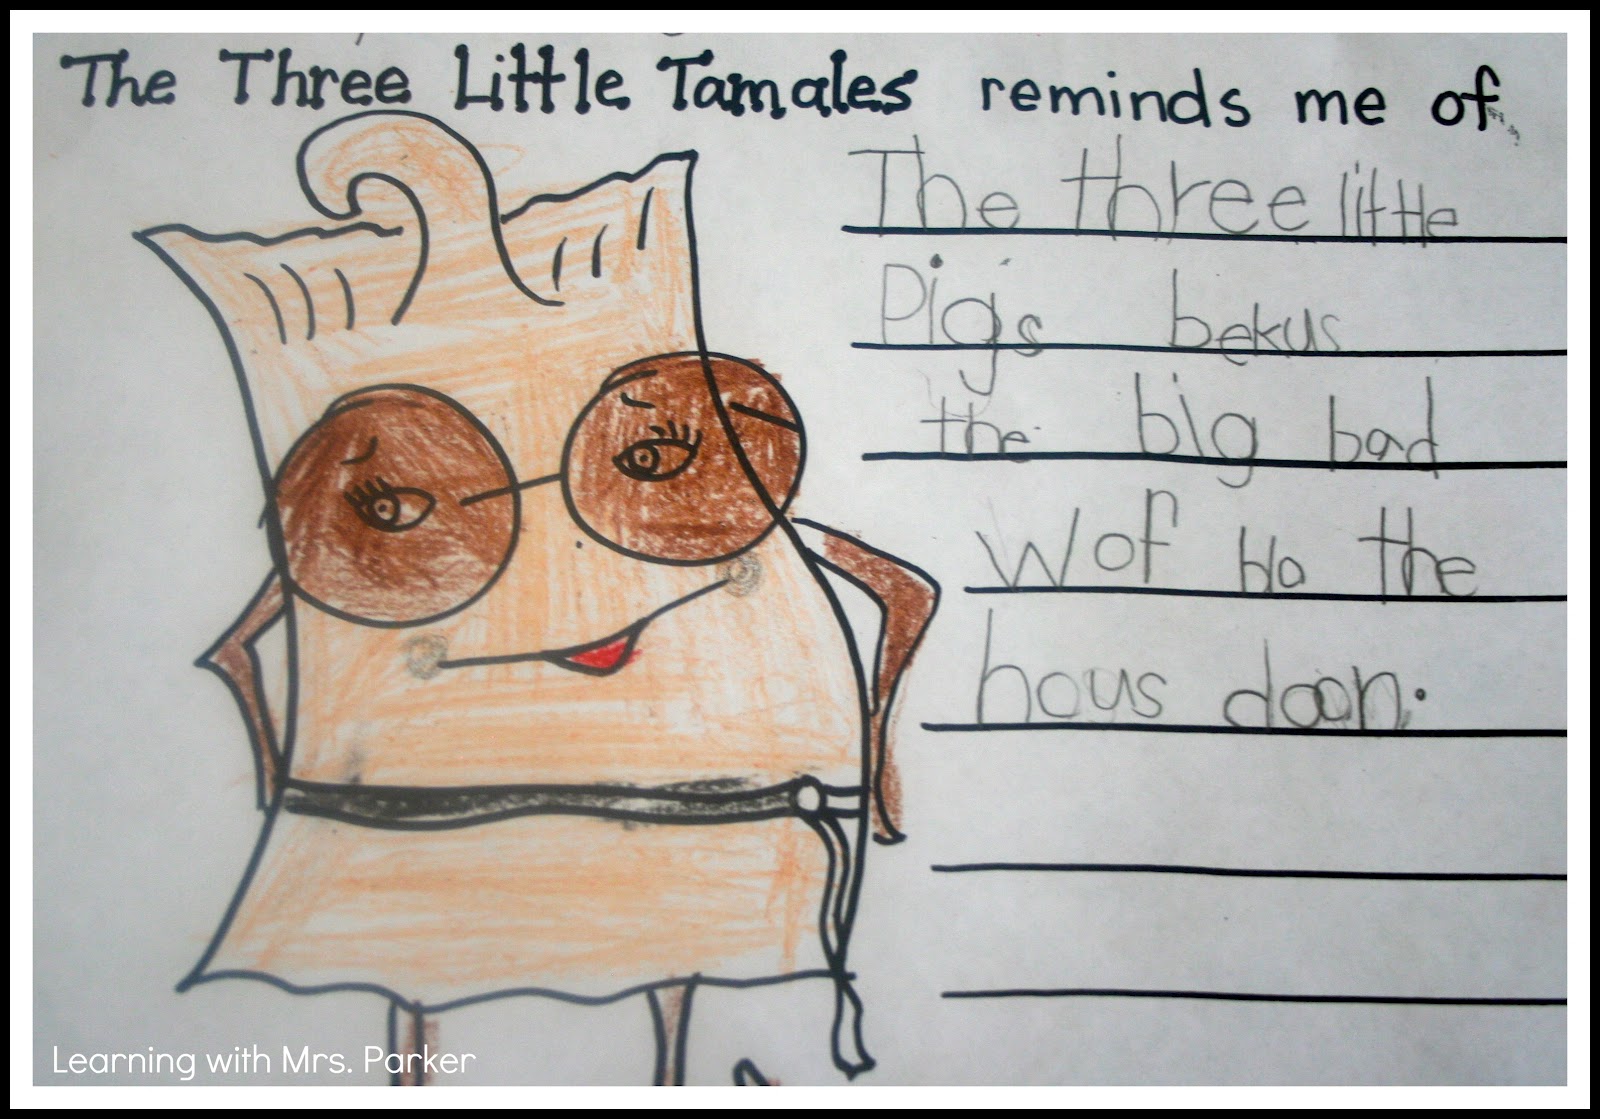 The Three Little Tamales reminds me of
The three little
Pigs bekus
the big bad
wof blo the
hous doon.
Learning with Mrs. Parker